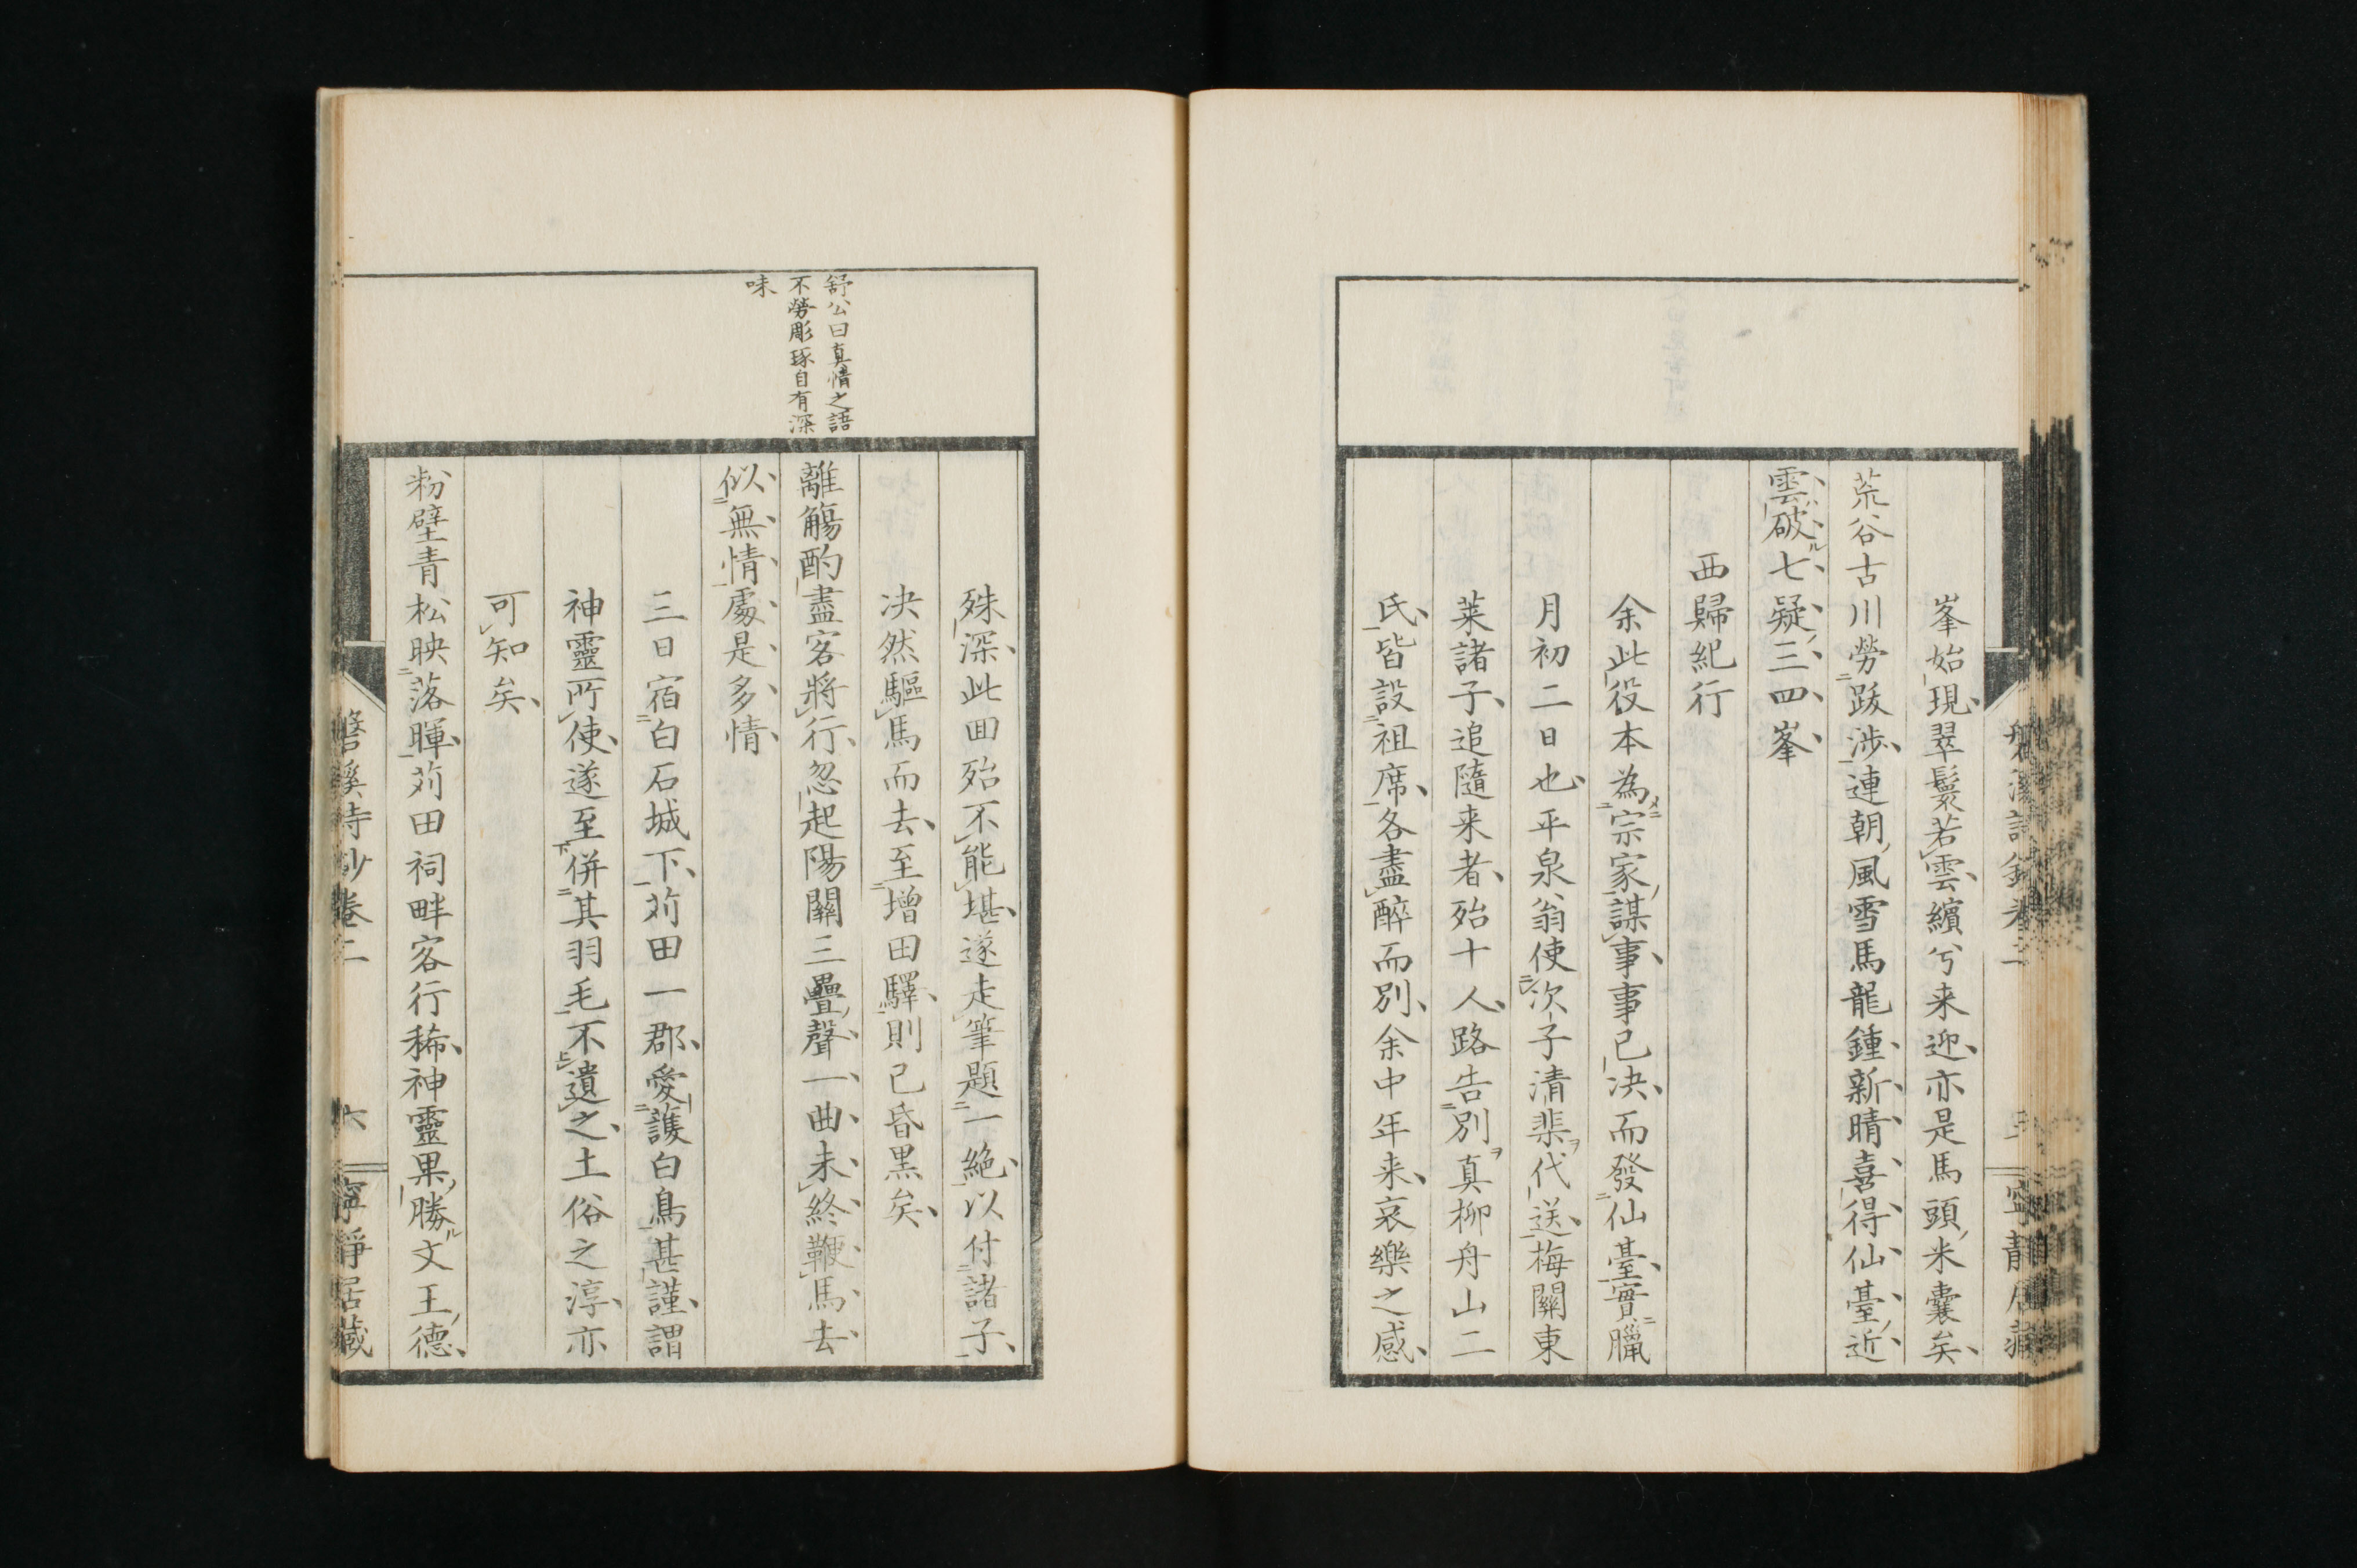 峯始現翠鬟若雲繽兮来迎亦是馬頭米囊矣
荒谷古川勞跋涉連朝風雪馬龍鍾新晴喜得仙臺近
雲破七疑三四峯
西歸紀行
余此役本為宗家謀事事已決而發仙臺實臘
月初二日也平泉翁使次子清棐代送梅關東
菜諸子追隨来者殆十人路告別真柳舟山二
氏皆設祖席各盡醉而別余中年来哀樂之感
殊深此回殆不能堪遂走筆題一絶以付諸子
决然驅馬而去至増田驛則已昏黒矣
舒公曰真情之語
不勞彫琢自有深
味
離觴酌盡客將行忽起陽關三疊聲一曲未終鞭馬去
似無情處是多情
三日宿白石城下苅田一郡愛護白鳥甚謹謂
神靈所使遂至併其羽毛不遺之土俗之淳亦
可知矣
粉壁青松映落暉苅田祠畔客行稀神靈果勝文王德
磐溪詩鈔卷二
六
寧靜居藏